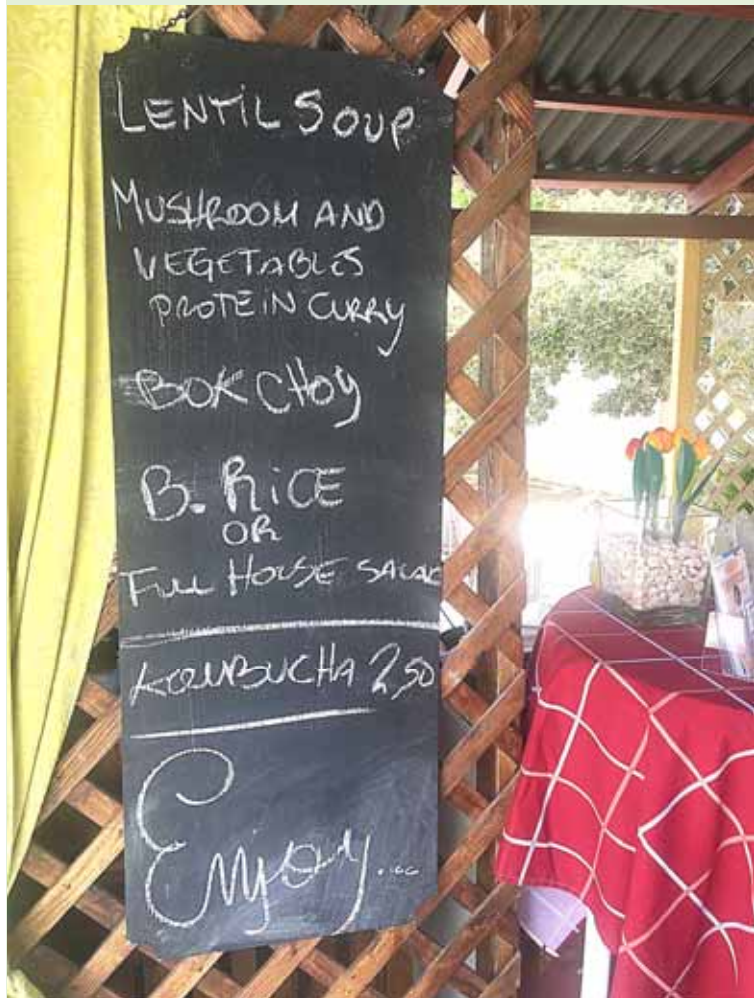 LENTIL SOUP
MUSHROOM AND
VEGETABLES
PROTEIN CURRY
BOK CHOY
B. RICE
OR
FULL HOUSE SALAD
KOMBUCHA 2,50
Enjoy...